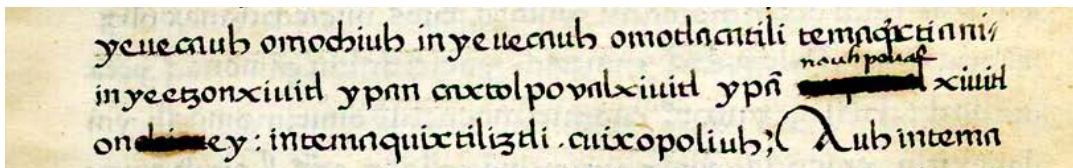 yeuecauh omochiuh inyeuecauh omotlacatili temaqͥxtiani⸗
nauhpoual
inyeetzonxiuitl ypan caxtolpovalxiuitl ypã xiuitl
on ey : intemaquixtiliztli . cuixopoliuh; Auh intema